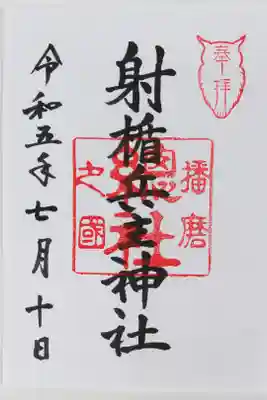 奉拝
射楯兵主神社
播磨
之國
令和五年七月十日